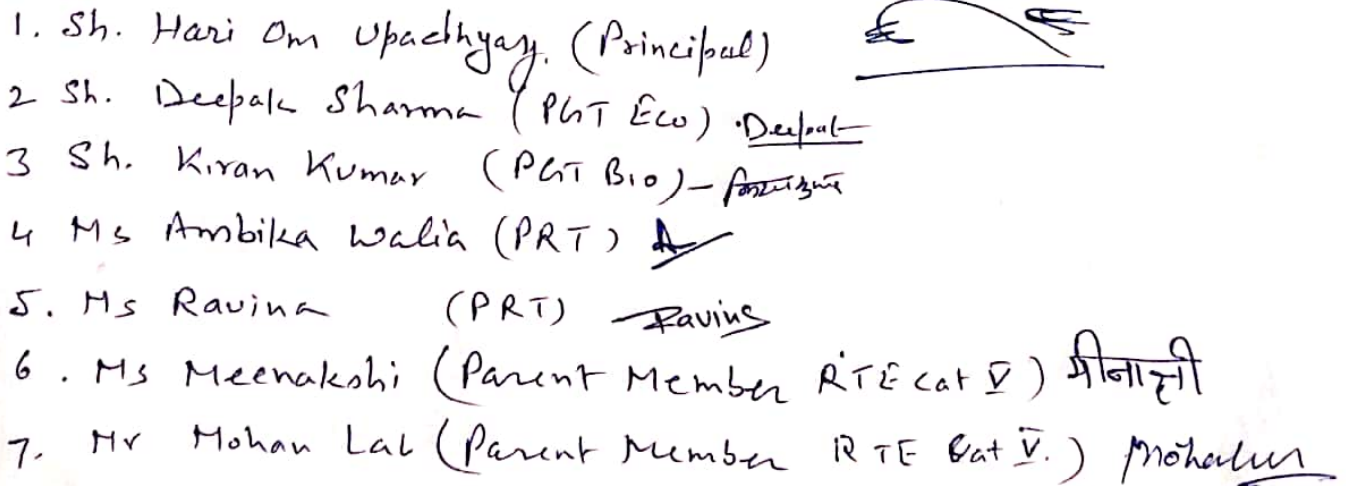 1. Sh. Hari Om Upadhyay. (Principal)
2 Sh. Deepak Sharma (PGT Eco) Deepak
3 Sh. Kiran Kumar (PGT Bio) -
4 Ms Ambika Walia (PRT)
5. Ms Ravina (PRT) Ravina
6. Ms Meenakshi (Parent Member RTE cat V) मीनाक्षी
7. Mr Mohan Lal (Parent Member RTE Cat V.) Mohanlal